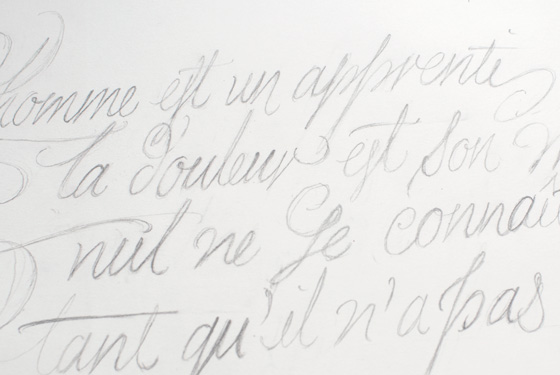 homme est un apprenti
la douleur est son
nul ne se connaît
tant qu'il n'a pas